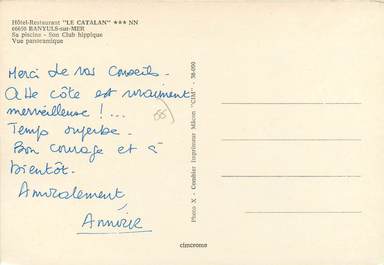 Hôtel-Restaurant "LE CATALAN" ★★★ NN
66650 BANYULS-sur-MER
Sa piscine - Son Club hippique
Vue panoramique
Merci de vos conseils -
Cette côte est vraiment
merveilleuse ! ...
Temps superbe -
Bon courage et à
bientôt.
Amicalement,
Annie
66
Photo X - Combier Imprimeur Mâcon "CIM" - 38-090
cimcrome